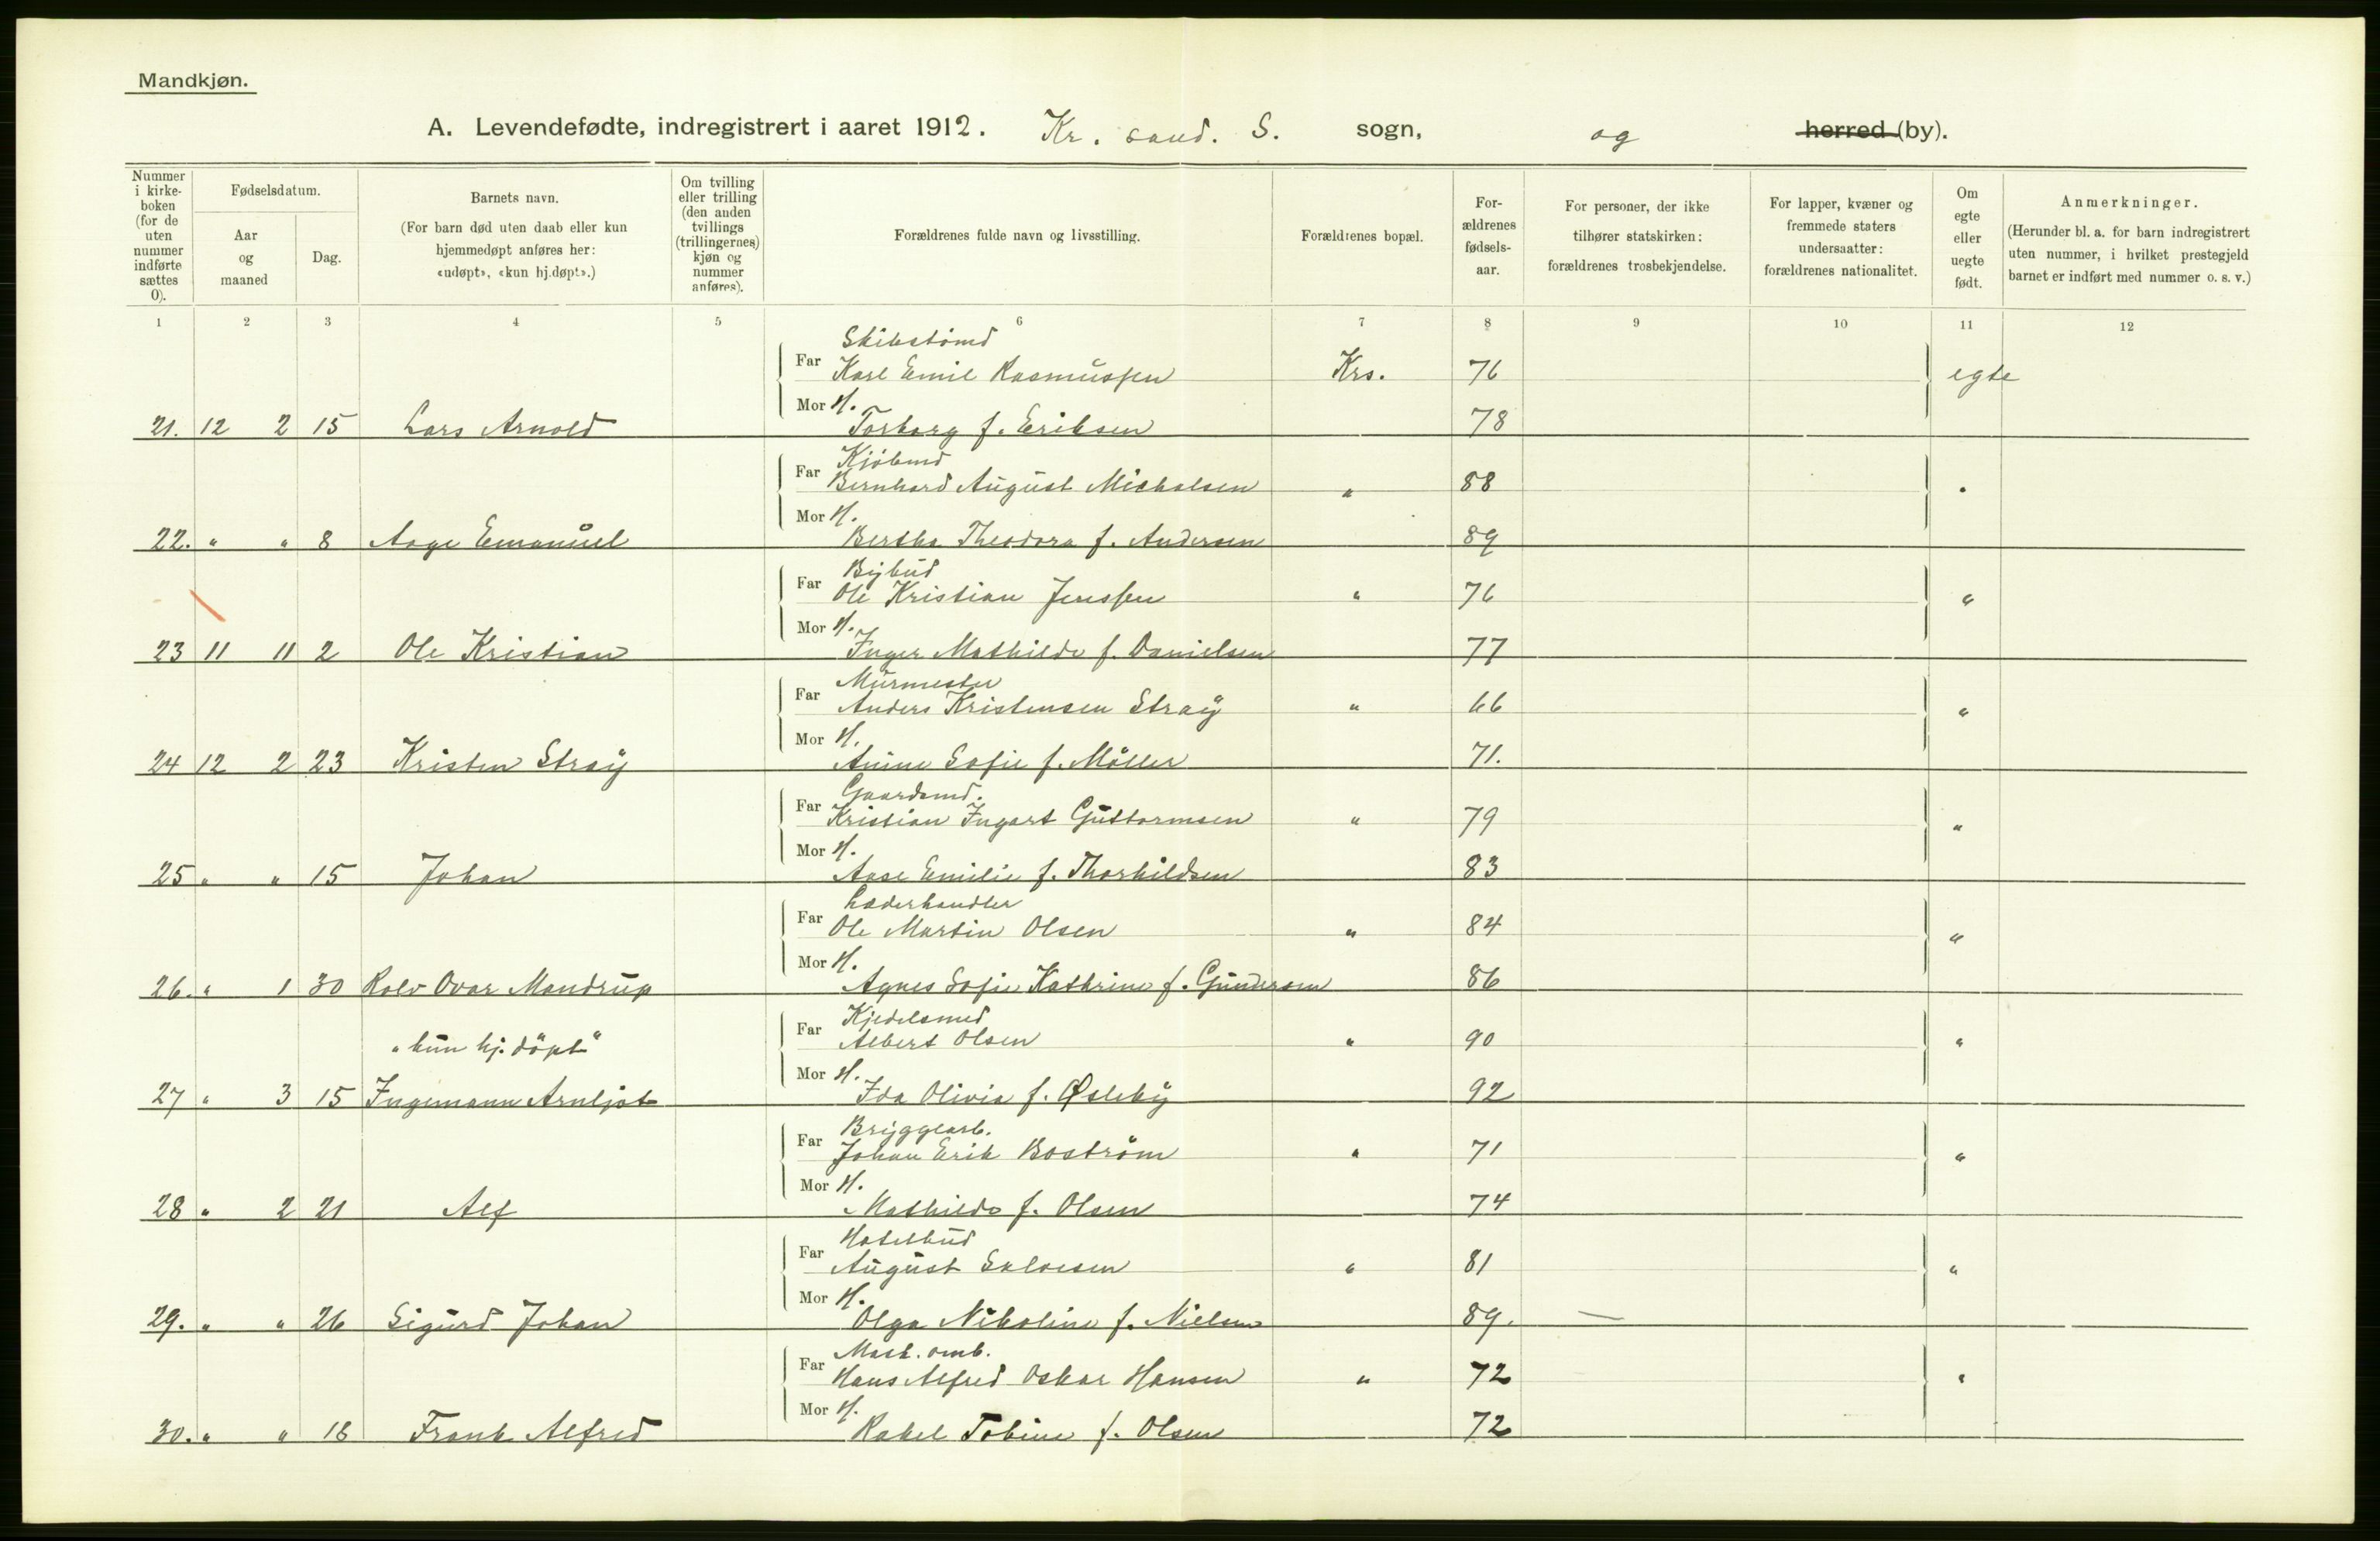 Mandkjøn.
A. Levendefødte, indregistrert i aaret 1912. Kr. sand. S. sogn, og herred (by).
Nummer i kirke-boken (for de uten nummer indførte sættes 0).
Fødselsdatum.
Aar og maaned
Dag.
Barnets navn.
(For barn død uten daab eller kun hjemmedøpt anføres her: «udøpt», «kun hj.døpt».)
Om tvilling eller trilling (den anden tvillings (trillingernes) kjøn og nummer anføres).
Forældrenes fulde navn og livsstilling.
Forældrenes bopæl.
For-ældrenes fødsels-aar.
For personer, der ikke tilhører statskirken: forældrenes trosbekjendelse.
For lapper, kvæner og fremmede staters undersaatter: forældrenes nationalitet.
Om egte eller uegte født.
Anmerkninger.
(Herunder bl. a. for barn indregistrert uten nummer, i hvilket prestegjeld barnet er indført med nummer o. s. v.)
1 2 3 4 5 6 7 8 9 10 11 12
Skibstømd
Far Karl Emil Rasmussen Krs. 76 egte
Mor H.
21. 12 2 15 Lars Arnold Torborg f. Eriksen 78
Kjöbmd
Far Bernhard August Michalsen " 88 "
Mor H.
22. " " 8 Aage Emanuel Bertha Theodora f. Andersen 89
Bybud
Far Ole Kristian Jenssen " 76 "
Mor H.
23 11 11 2 Ole Kristian Inger Mathilde f. Danielsen 77
Murmester
Far Anders Kristensen Stray " 66 "
Mor H.
24 12 2 23 Kristen Stray Anine Sofie f. Möller 71.
Gaardsmd.
Far Kristian Ingart Guttormsen " 79 "
Mor H.
25 " " 15 Johan Aase Emilie f. Thorkildsen 83
Læderhandler
Far Ole Martin Olsen " 84 "
Mor H.
26. " 1 30 Rolv Ovar Mandrup Agnes Sofie Kathrine f. Gundersen 86
Kjedelsmed
Far Albert Olsen " 90 "
"kun hj. döpt"
Mor H.
27 " 3 15 Ingemann Arnljot Ida Olivia f. Øsleby 92
Bryggearb.
Far Johan Erik Boström " 71 "
Mor H.
28 " 2 21 Alf Mathilde f. Olsen 74
Hotelbud
Far August Salvesen " 81 "
Mor H.
29. " " 26 Sigurd Johan Olga Nikoline f. Nielsen 89. —
Mask. omb.
Far Hans Alfred Oskar Hansen " 72 "
Mor H.
30. " " 18 Frank Alfred Rakel Tobine f. Olsen 72